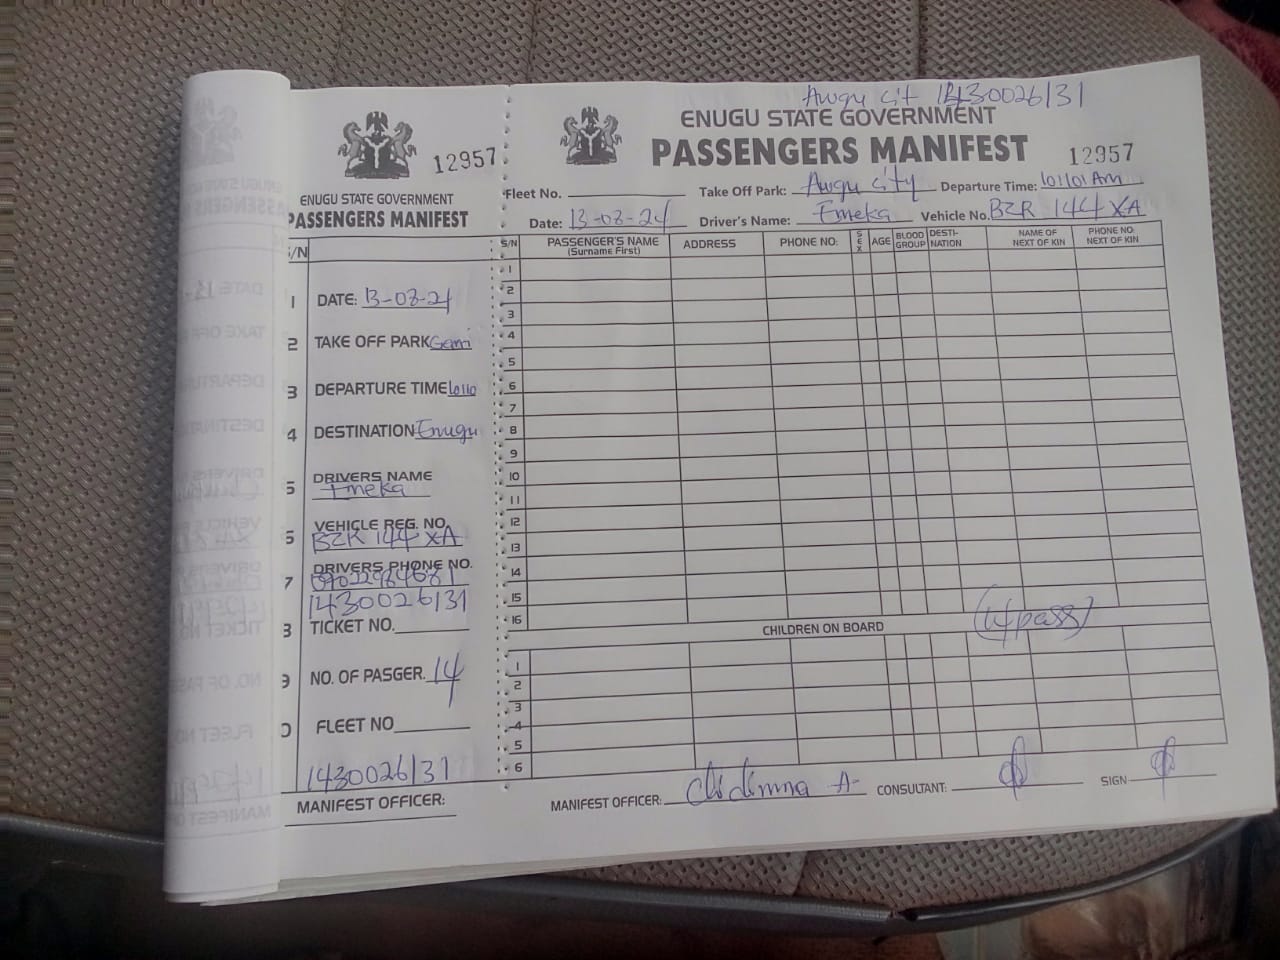 12957
ENUGU STATE GOVERNMENT
PASSENGERS MANIFEST
/N
1 DATE: 13-03-24
2 TAKE OFF PARK
3 DEPARTURE TIME
4 DESTINATION Enugu
5 DRIVERS NAME
Emeka
6 VEHICLE REG. NO.
BZR 144 XA
7 DRIVERS PHONE NO.
1430026131
8 TICKET NO.
9 NO. OF PASGER. 14
0 FLEET NO
1430026131
MANIFEST OFFICER:
Awgu cit 1430026131
ENUGU STATE GOVERNMENT
PASSENGERS MANIFEST 12957
Fleet No. Take Off Park: Awgu city Departure Time:
Date: 13-03-24 Driver's Name: Emeka Vehicle No. BZR 144 XA
S/N PASSENGER'S NAME (Surname First) ADDRESS PHONE NO: SEX AGE BLOOD GROUP DESTI-NATION NAME OF NEXT OF KIN PHONE NO: NEXT OF KIN
1
2
3
4
5
6
7
8
9
10
11
12
13
14
15
16
CHILDREN ON BOARD
1
2
3
4
5
6
MANIFEST OFFICER: Chidimma A- CONSULTANT: SIGN